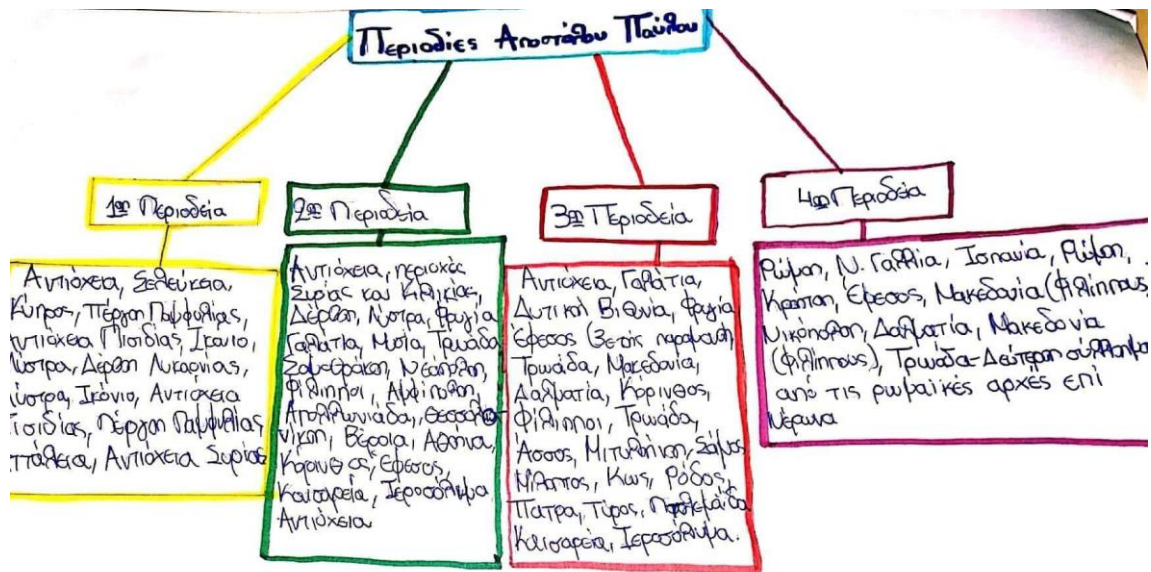 Περιοδίες Αποστόλου Παύλου
1η Περιοδεία
Αντιόχεια, Σελεύκεια,
Κύπρος, Πέργη Παμφυλίας,
ντιόχεια Πισιδίας, Ικόνιο,
ύστρα, Δέρβη Λυκαονίας,
ύστρα, Ικόνιο, Αντιόχεια
ισιδίας, Πέργη Παμφυλίας
ττάλεια, Αντιόχεια Συρίας
2η Περιοδεία
Αντιόχεια, περιοχές
Συρίας και Κιλικίας,
Δέρβη, Λύστρα, Φρυγία
Γαλατία, Μυσία, Τρωάδα
Σαμοθράκη, Νεάπολη,
Φίλιπποι, Αμφίπολη
Απολλωνιάδα, Θεσσαλο-
νίκη, Βέροια, Αθήνα,
Κόρινθος, Έφεσος,
Καισαρεία, Ιεροσόλυμα
Αντιόχεια
3η Περιοδεία
Αντιόχεια, Γαλάτια,
Δυτική Βιθυνία, Φρυγία
Έφεσος (3ετής παραμονή)
Τρωάδα, Μακεδονία,
Δαλματία, Κόρινθος,
Φίλιπποι, Τρωάδα,
Άσσος, Μιτυλήνη, Σάμος
Μίλητος, Κως, Ρόδος,
Πάτρα, Τύρος, Πτολεμαΐδα
Καισαρεία, Ιεροσόλυμα.
4η Περιοδεία
Ρώμη, Ν. Γαλλία, Ισπανία, Ρώμη,
Κρήτη, Έφεσος, Μακεδονία (Φιλίππους)
Νικόπολη, Δαλματία, Μακεδονία
(Φιλίππους), Τρωάδα-Δεύτερη σύλληψη
από τις ρωμαϊκές αρχές επί
Νέρωνα